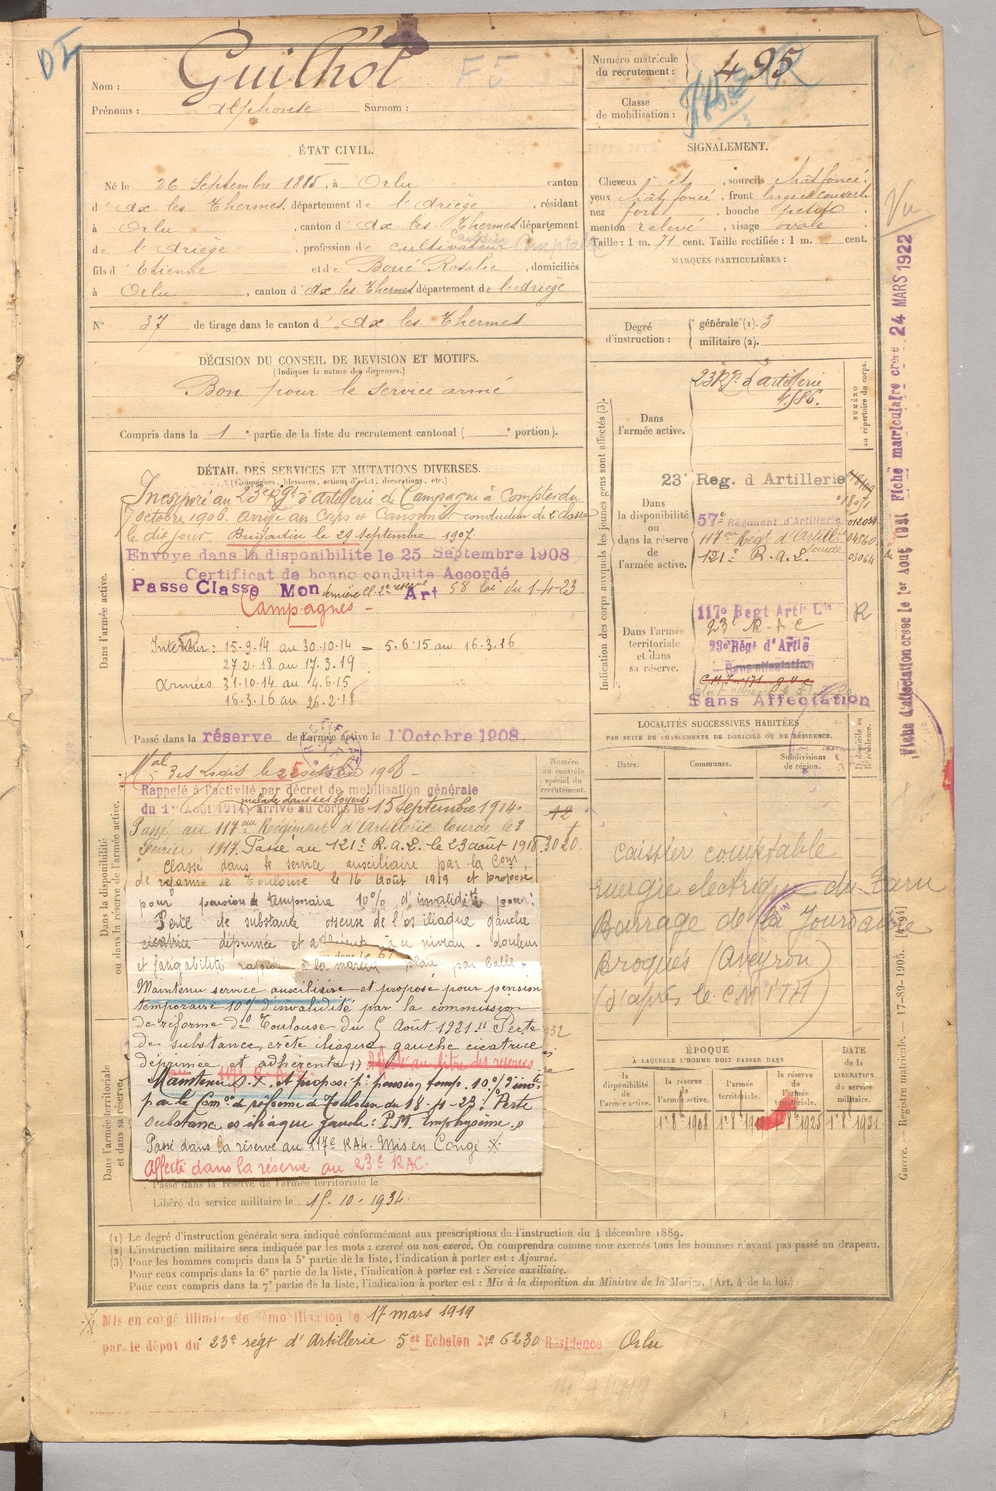 DI
Nom : Guilhot
Prénoms : Alphonse Surnom :
Numéro matricule
du recrutement : 495
Classe
de mobilisation :
ÉTAT CIVIL.
Né le 26 Septembre 1885, à Orlu canton
d'Ax les Thermes, département de l'Ariège, résidant
à Orlu, canton d'Ax les Thermes département
de l'Ariège, profession de cultivateur
fils d'Etienne et de Boué Rosalie, domiciliés
à Orlu, canton d'Ax les Thermes département de l'Ariège
N° 37 de tirage dans le canton d'Ax les Thermes
SIGNALEMENT.
Cheveux et sourcils chât foncé.
yeux chât foncé, front large découvert
nez fort, bouche petite
menton relevé, visage ovale
Taille : 1 m. 71 cent. Taille rectifiée : 1 m. cent.
MARQUES PARTICULIÈRES :
Degré
d'instruction :
générale (1). 3
militaire (2).
Vu
DÉCISION DU CONSEIL DE REVISION ET MOTIFS.
(Indiquer la nature des dispenses.)
Bon pour le service armé
Compris dans la 1e partie de la liste du recrutement cantonal ( e portion).
DÉTAIL DES SERVICES ET MUTATIONS DIVERSES.
(Campagnes, blessures, actions d'éclat, décorations, etc.)
Incorporé au 23e Rgt d'Artillerie de Campagne à Compter du
7 octobre 1906. arrivé au Corps et Canonnier conducteur de 2e classe
le dit jour. Brigadier le 29 Septembre 1907.
Envoyé dans la disponibilité le 25 Septembre 1908
Certificat de bonne conduite Accordé
Passé Classe Mon dernière Cl. 2e réserve Art 58 loi du 1-4-23
Campagnes -
Intérieur : 15-9-14 au 30-10-14 = 5-6-15 au 16-3-16
27-2-18 au 17-3-19
Armées 31-10-14 au 4-6-15
16-3-16 au 26-2-18
Passé dans la réserve de l'armée active le 1 Octobre 1908
Dans l'armée active.
Mal des Logis le 1908 -
Rappelé à l'activité par décret de mobilisation générale
du 1er Août 1914, malade dans ses foyers arrivé au corps le 15 septembre 1914.
Passé au 117me Régiment d'Artillerie lourde le 3
février 1917. Passé au 121e R.A.L. le 23 août 1918.
Classé dans le service auxiliaire par la Com.
de réforme de Toulouse le 16 Août 1919 et proposé
pour pension temporaire 10% d'invalidité pour :
Perte de substance osseuse de l'os iliaque gauche
cicatrice déprimée et adhérente à ce niveau - douleur
et fatigabilité à la marche plaie par balle -
Maintenu service auxiliaire et proposé pour pension
temporaire 10% d'invalidité par la commission
de réforme de Toulouse du 5 Août 1921 " Perte
de substance, crête iliaque, gauche cicatrice
déprimée et adhérente
Maintenu S.X. et proposé pr pension temp. 10% d'invté
par la Comon de réforme de Toulouse du 18-4-23 : Perte
substance os iliaque gauche : P.M. Emphysème.
Passé dans la réserve au 117e RAL. Mis en Congé
Affecté dans la réserve au 23e RAC.
Passé dans la réserve de l'armée territoriale le
Libéré du service militaire le 15-10-1934.
Dans la disponibilité
ou dans la réserve de l'armée active.
Dans l'armée territoriale
et dans sa réserve.
Numéro
au contrôle
spécial du
recrutement.
Indication des corps auxquels les jeunes gens sont affectés (3).
NUMÉRO
au répertoire du corps.
Dans
l'armée active.
23 Rgt d'artillerie
Dans
la disponibilité
ou
dans la réserve
de
l'armée active.
23e Reg. d Artillerie
57e Régiment d'Artillerie
117me Régt d'Artillie lourde
121e R.a.L.
Dans l'armée
territoriale
et dans
sa réserve.
117e Regt Artie Lde
23e R.A.C
23e Régt d'Artie
Sans affectation
Sans Affectation
R
LOCALITÉS SUCCESSIVES HABITÉES
PAR SUITE DE CHANGEMENTS DE DOMICILE OU DE RÉSIDENCE.
Dates.
Communes.
Subdivisions
de région.
caissier comptable
Energie électrique du Tarn
Barrage de la Jourdanie
Broquiès (Aveyron)
(d'après le CM 171)
ÉPOQUE
À LAQUELLE L'HOMME DOIT PASSER DANS
la disponibilité
de
l'armée active.
la réserve
de
l'armée active.
l'armée
territoriale.
la réserve
de
l'armée
territoriale.
DATE
de la
LIBÉRATION
du service
militaire.
1er 8bre 1908
Fiche d'affectation créée le 1er Aout 1931 Fiche matriculaire créée 24 MARS 1922
Guerre. — Registre matricule. 17-89-1905.
(1) Le degré d'instruction générale sera indiqué conformément aux prescriptions de l'instruction du 4 décembre 1889.
(2) L'instruction militaire sera indiquée par les mots : exercé ou non exercé. On comprendra comme non exercés tous les hommes n'ayant pas passé au drapeau.
(3) Pour les hommes compris dans la 5e partie de la liste, l'indication à porter est : Ajourné.
Pour ceux compris dans la 6e partie de la liste, l'indication à porter est : Service auxiliaire.
Pour ceux compris dans la 7e partie de la liste, l'indication à porter est : Mis à la disposition du Ministre de la Marine. (Art. 4 de la loi.)
Mis en congé illimité de démobilisation le 17 mars 1919
par le dépot du 23e régt d'Artillerie 5e Echelon No 6230 Résidence Orlu